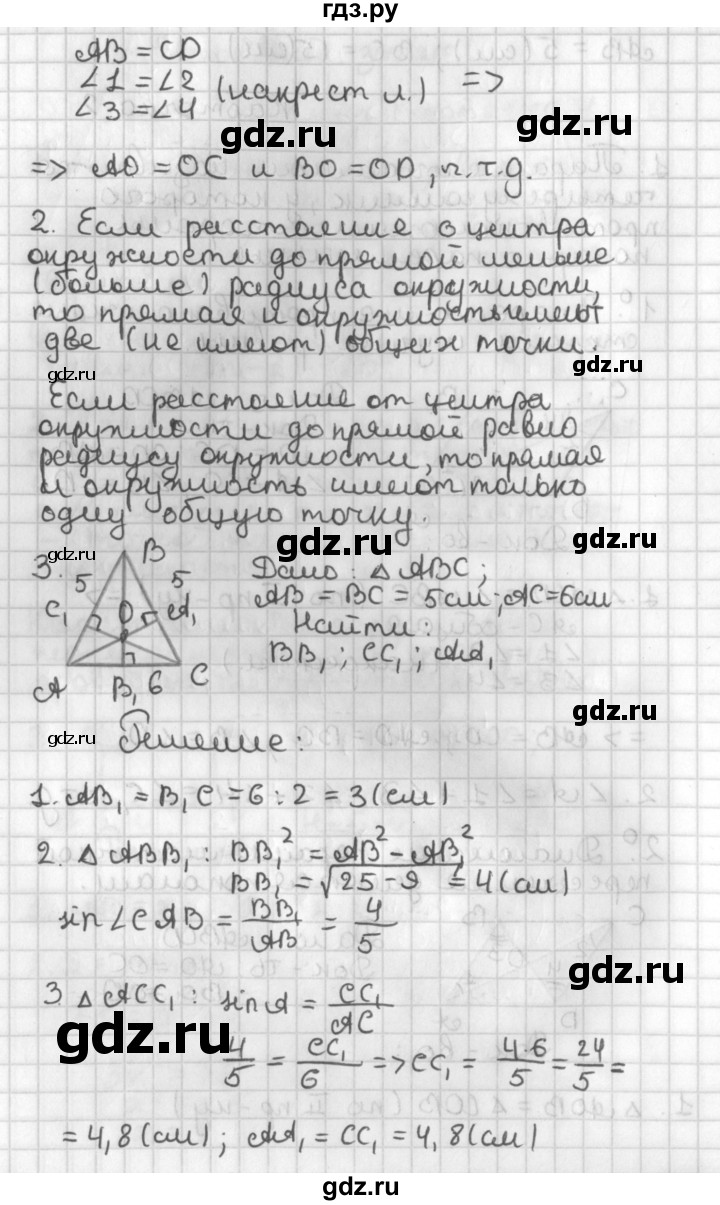 гдз.ру
AB = CD
∠1 = ∠2 (накрест л.) =>
∠3 = ∠4
gdz.ru
=> AO = OC и BO = OD, ч.т.д.
gdz.ru
2. Если расстояние о центра
окружности до прямой меньше
(больше) радиуса окружности,
то прямая и окружность имеют
две (не имеют) общих точки.
gdz.ru
gdz.ru
Если расстояние от центра
окружности до прямой равно
радиусу окружности, то прямая
и окружность имеют только
одну общую точку.
gdz.ru
gdz.ru
3. B
5 5
C₁ O A₁
A B₁ 6 C
Дано: △ABC;
AB = BC = 5см; AC = 6см
Найти:
BB₁; CC₁; AA₁
gdz.ru
gdz.ru
Решение:
1. AB₁ = B₁C = 6 : 2 = 3 (см)
2. △ABB₁: BB₁² = AB² - AB₁²
BB₁ = √25 - 9 = 4 (см)
sin∠CAB = BB₁/AB = 4/5
gdz.ru
3 △ACC₁: sin A = CC₁/AC
gdz.ru
4/5 = CC₁/6 => CC₁ = 4·6/5 = 24/5 =
= 4,8 (см); AA₁ = CC₁ = 4,8 (см)
gdz.ru